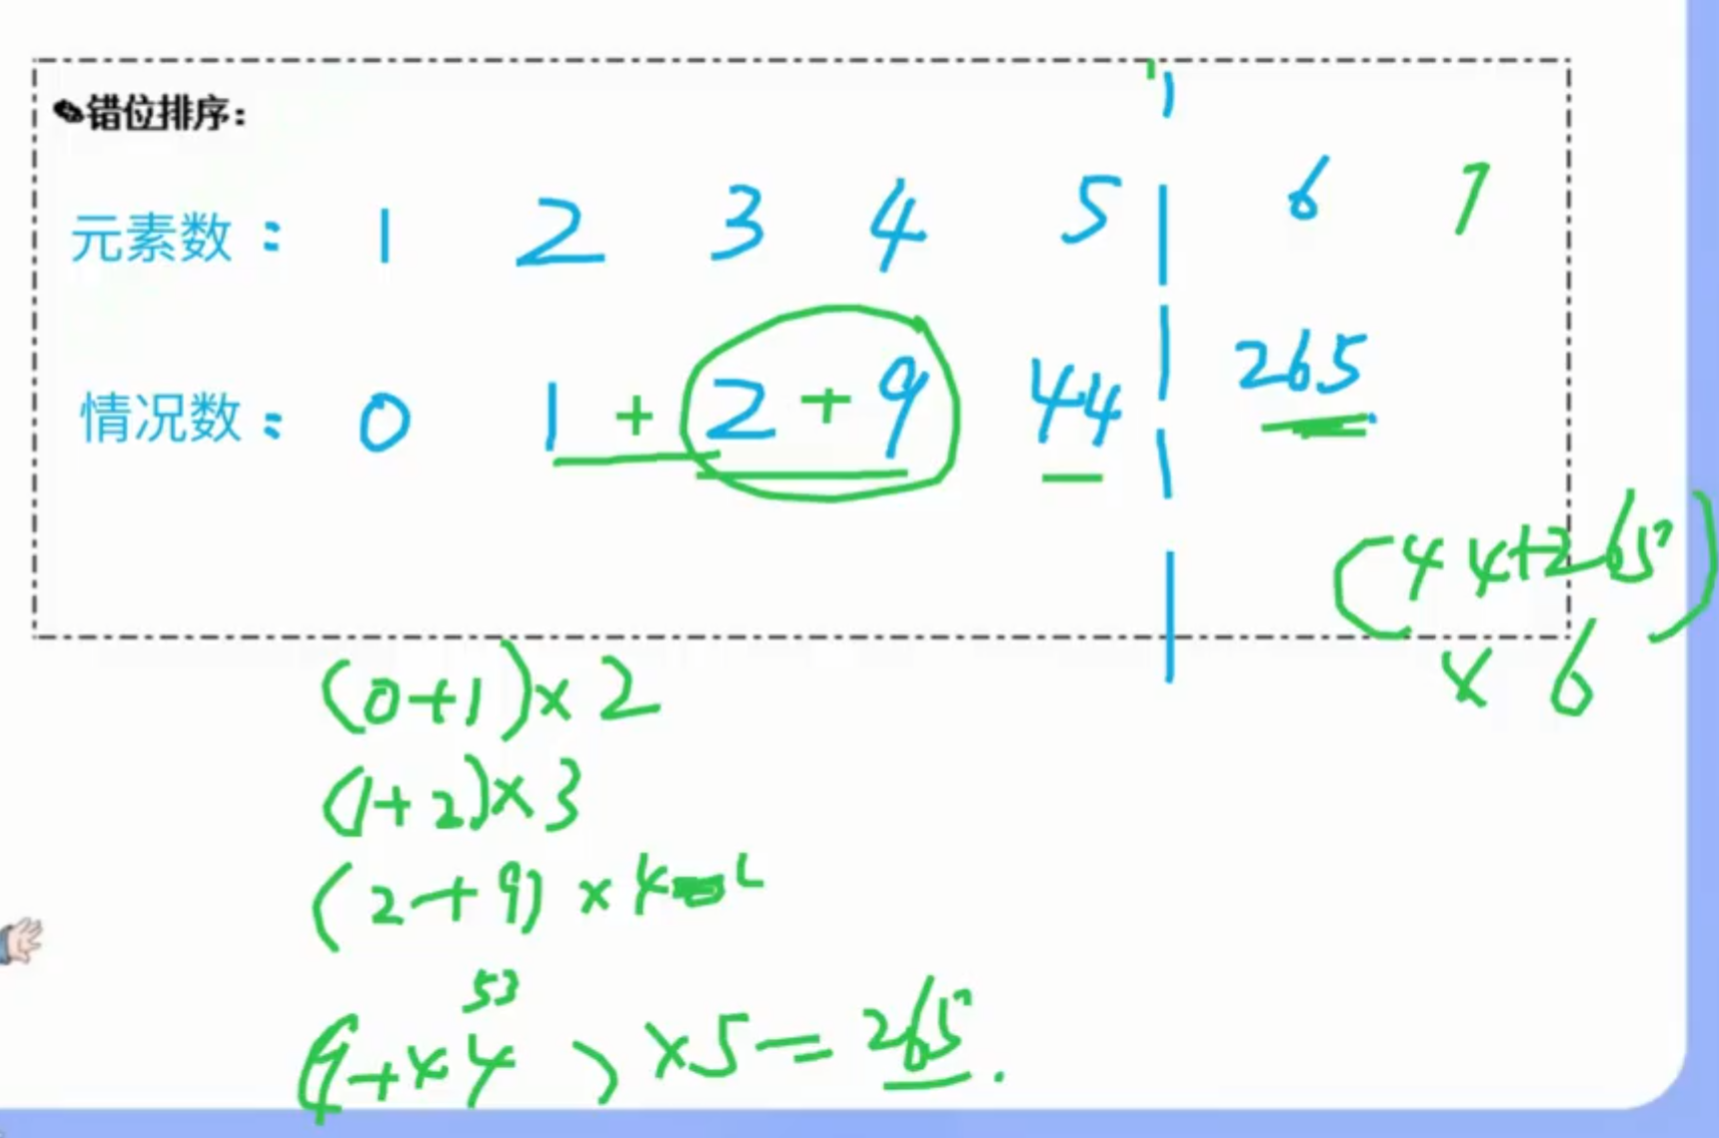 错位排序：
元素数： 1 2 3 4 5 6 7
情况数： 0 1 + 2 + 9 44 265
(44+265)
×6
(0+1)×2
(1+2)×3
(2+9)×4
53
(9+44)×5=265.